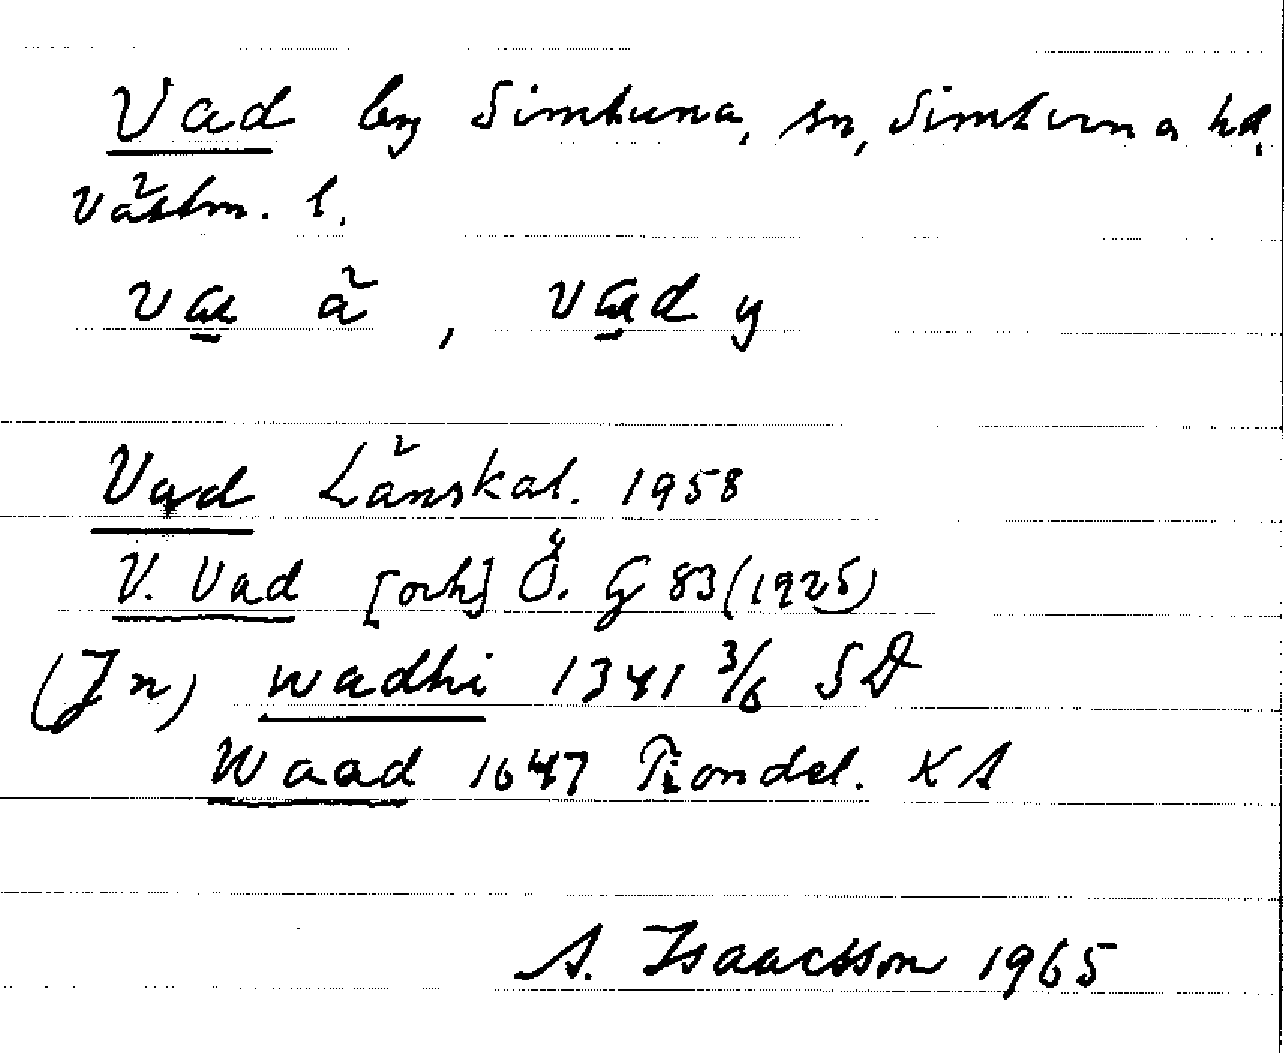 Vad by Simtuna, sn, Simtuna hd,
Västm. l.
va ä, vad y
Vad Länskal. 1958
V. Vad [och] Ö. G 83 (1925)
(Jn) wadhi 1341 3/6 SD
Waad 1647 Tiondel. KA
A. Isaacsson 1965